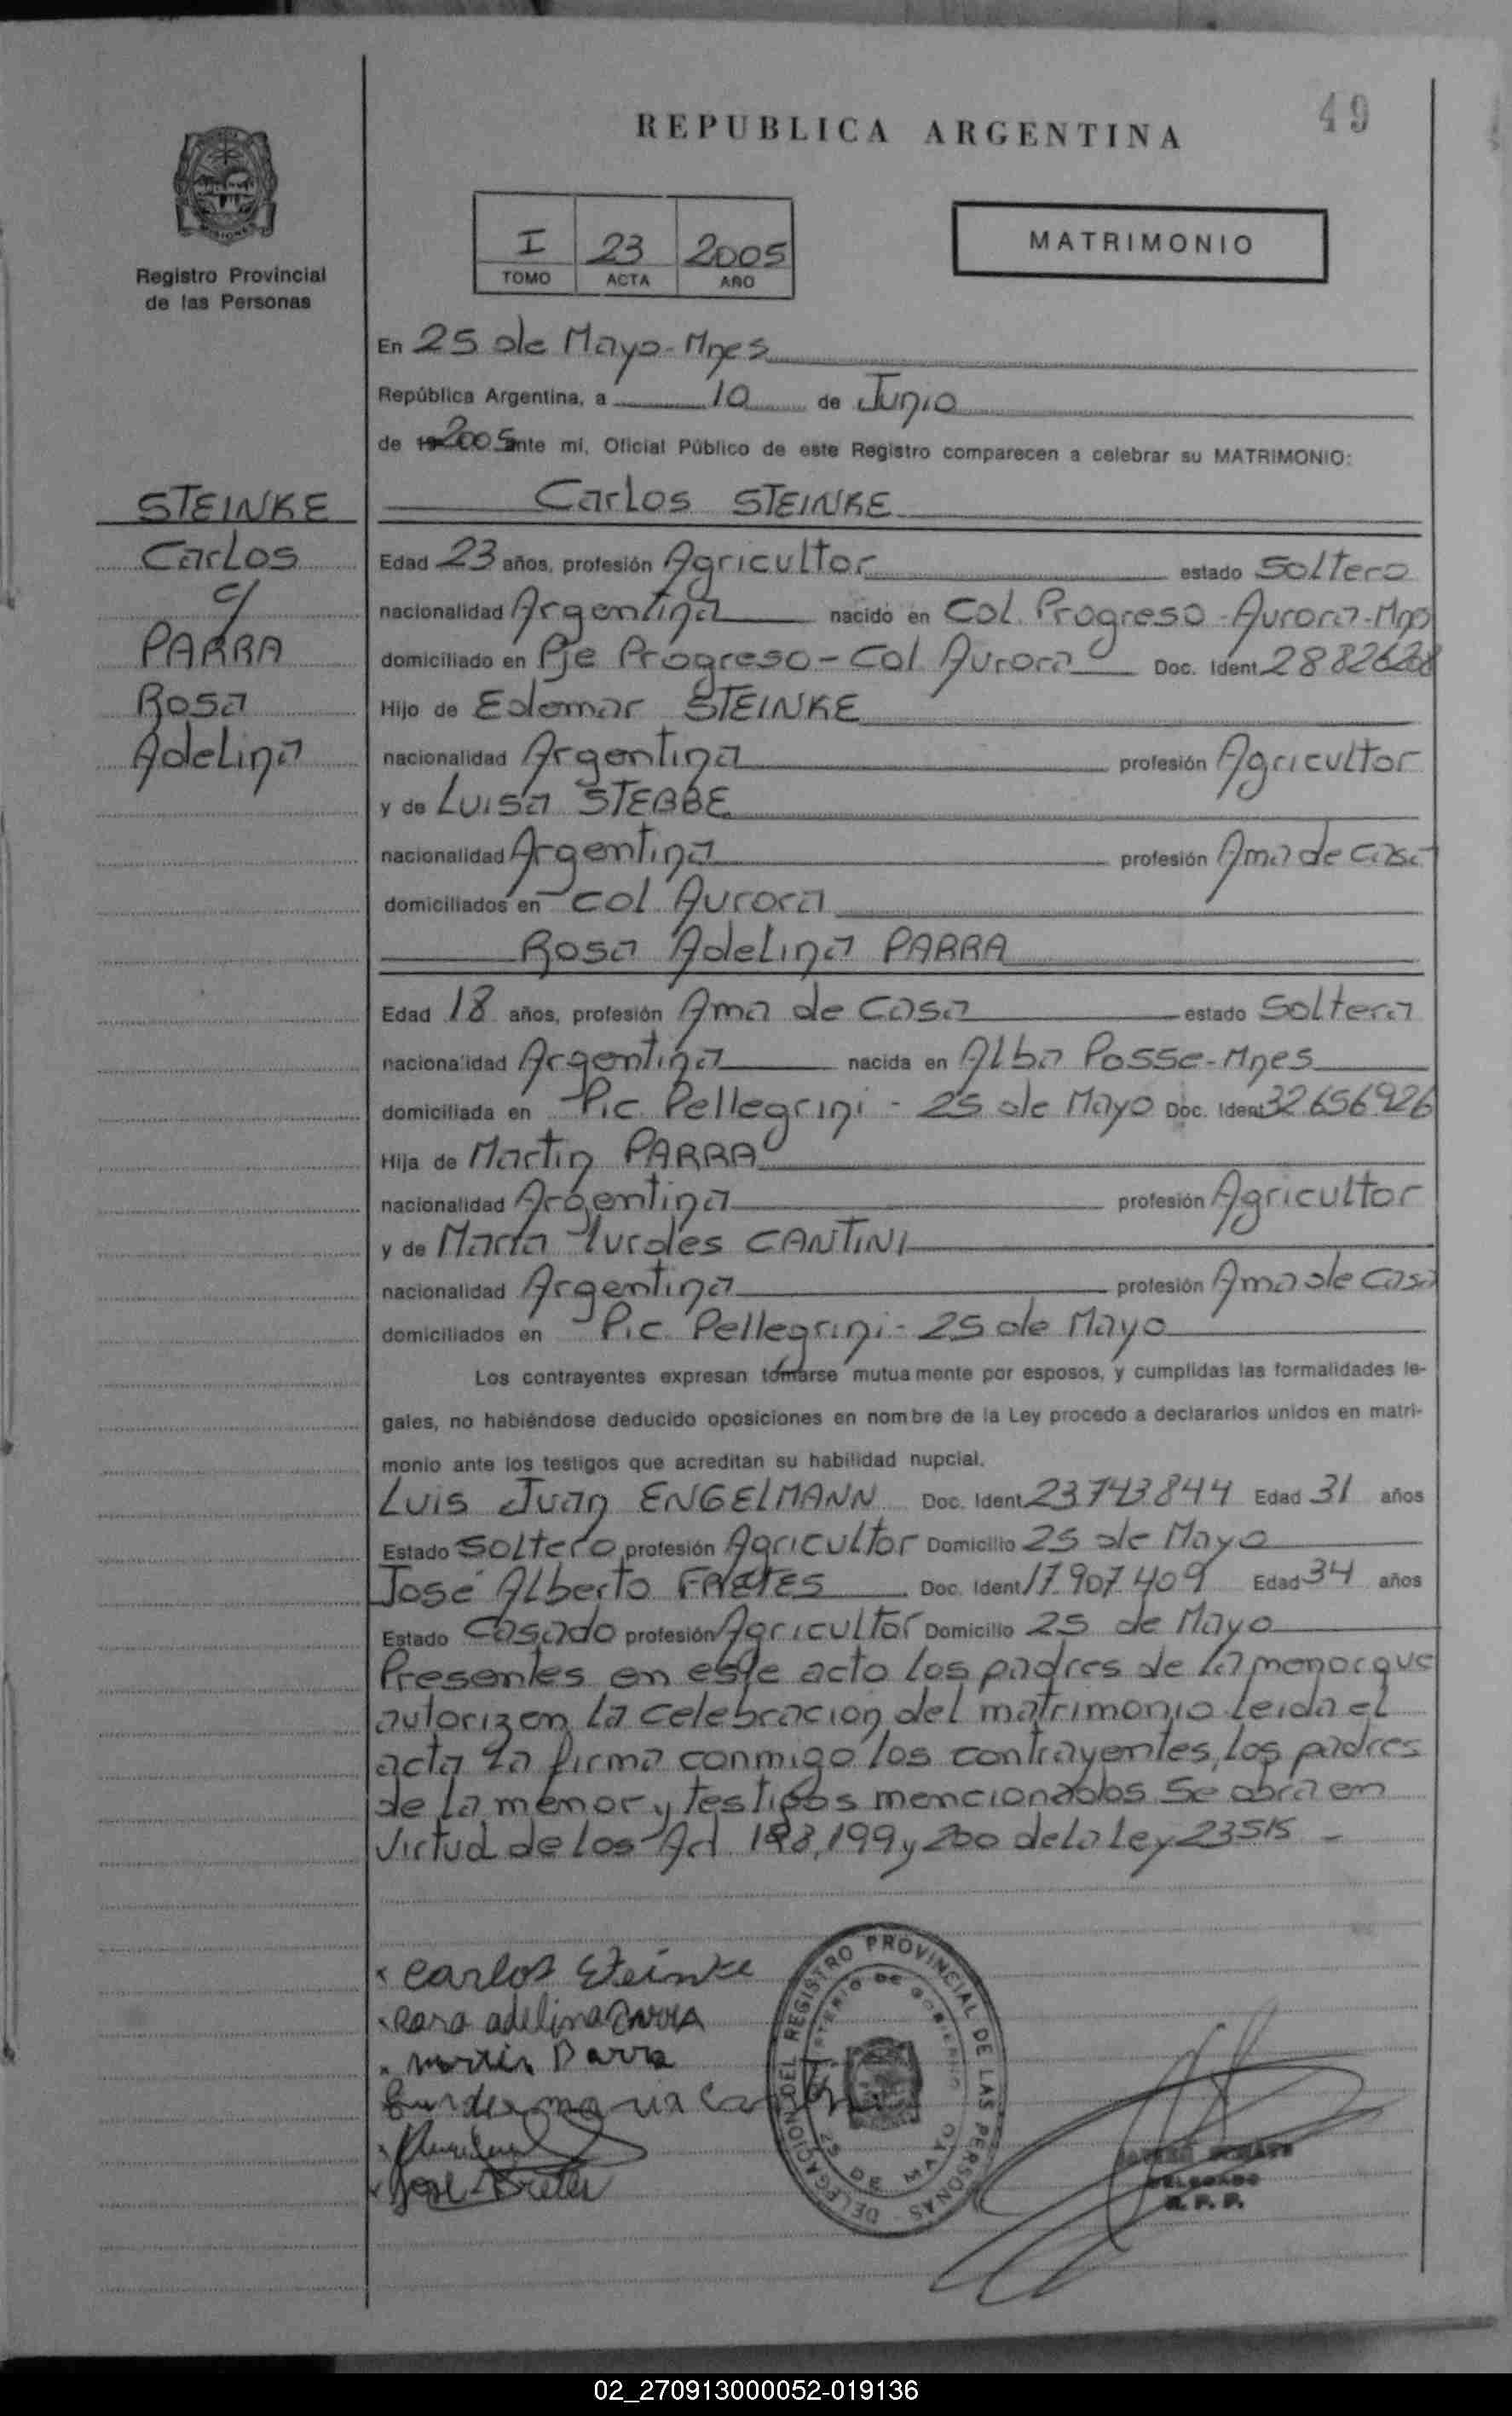 49
REPUBLICA ARGENTINA
I 23 2005
TOMO ACTA AÑO
MATRIMONIO
Registro Provincial
de las Personas
En 25 de Mayo - Mnes
República Argentina, a 10 de Junio
de 19 2005 ante mí, Oficial Público de este Registro comparecen a celebrar su MATRIMONIO:
STEINKE
Carlos
c/
PARRA
Rosa
Adelina
Carlos STEINKE
Edad 23 años, profesión Agricultor estado Soltero
nacionalidad Argentina nacido en Col. Progreso - Aurora - Mnes
domiciliado en Pje Progreso - Col Aurora Doc. Ident
Hijo de Edemar STEINKE
nacionalidad Argentina profesión Agricultor
y de Luisa STEBBE
nacionalidad Argentina profesión Ama de Casa
domiciliados en Col. Aurora
Rosa Adelina PARRA
Edad 18 años, profesión Ama de Casa estado Soltera
nacionalidad Argentina nacida en Alba Posse - Mnes
domiciliada en Pic. Pellegrini - 25 de Mayo Doc. Ident 32.656.926
Hija de Martin PARRA
nacionalidad Argentina profesión Agricultor
y de Maria Lurdes CANTINI
nacionalidad Argentina profesión Ama de Casa
domiciliados en Pic. Pellegrini - 25 de Mayo
Los contrayentes expresan tomarse mutuamente por esposos, y cumplidas las formalidades le-
gales, no habiéndose deducido oposiciones en nombre de la Ley procedo a declararlos unidos en matri-
monio ante los testigos que acreditan su habilidad nupcial.
Luis Juan ENGELMANN Doc. Ident 23.743.844 Edad 31 años
Estado Soltero profesión Agricultor Domicilio 25 de Mayo
José Alberto FRETES Doc. Ident 17.907.409 Edad 34 años
Estado Casado profesión Agricultor Domicilio 25 de Mayo
Presentes en este acto los padres de la menor que
autorizan la celebracion del matrimonio leida el
acta la firma conmigo los contrayentes, los padres
de la menor y testigos mencionados. Se obra en
virtud de los Art. 198, 199 y 200 de la Ley 23515 -
Carlos Steinke
Rosa adelina Parra
martin Parra
Lurdes maria
Jose Fretes
DELEGACION DEL REGISTRO PROVINCIAL DE LAS PERSONAS
MINISTERIO DE GOBIERNO
25 DE MAYO
DELEGADO
R. P. P.
02_270913000052-019136